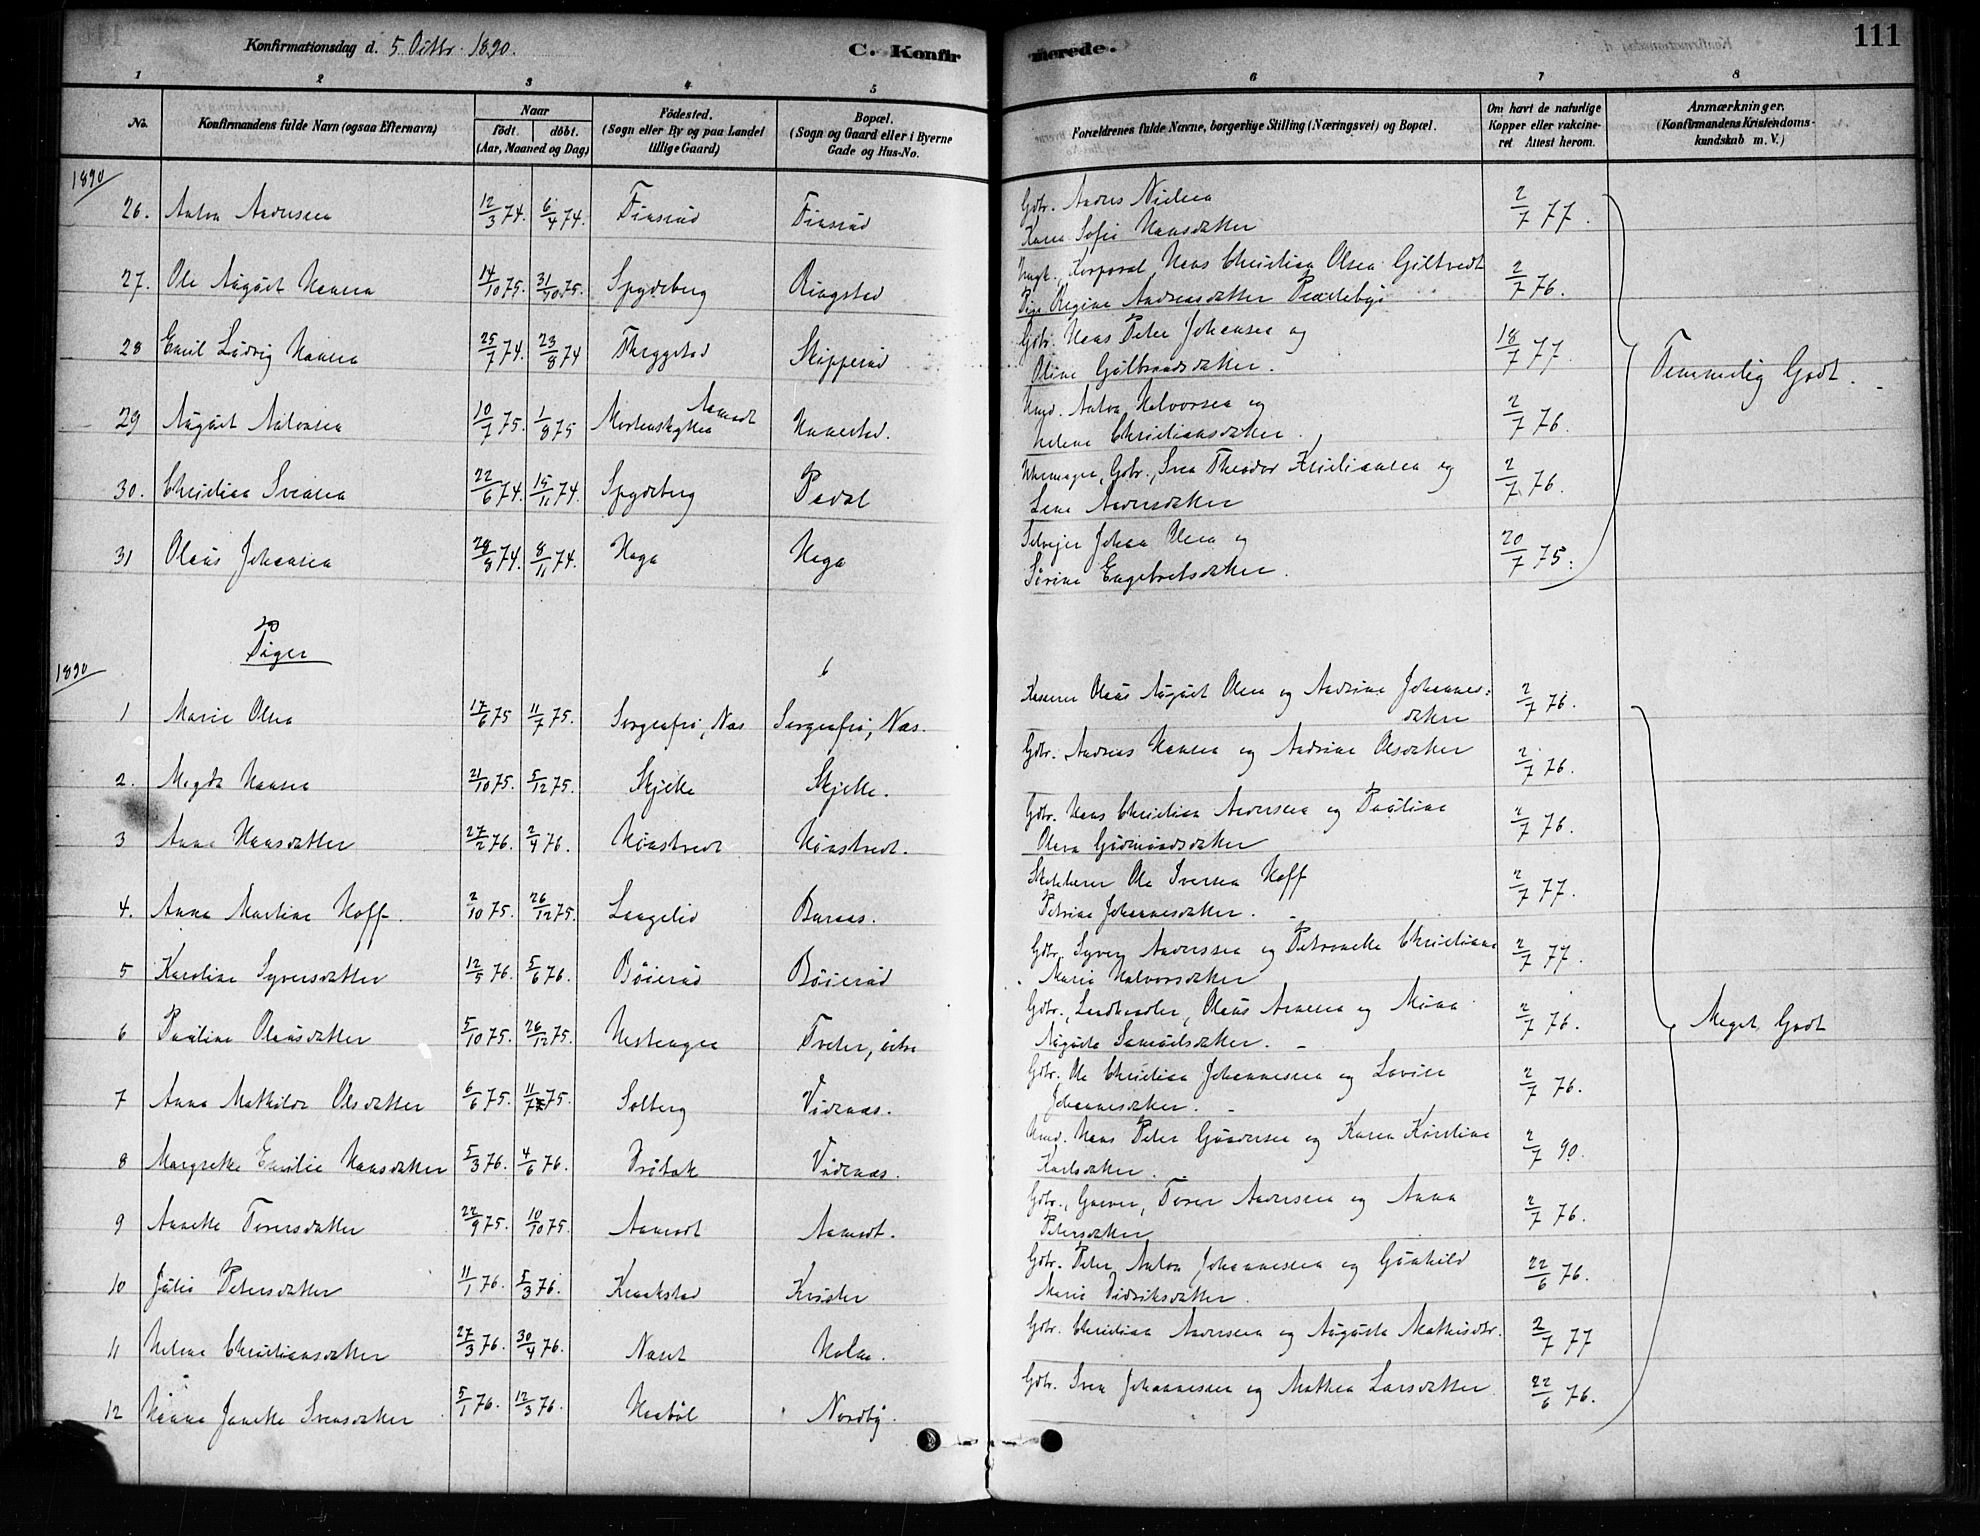 Konfirmationsdag d. 5 Octbr. 1890.
C. Konfirmerede.
111
1 2 3 4 5 6 7 8
No.
Konfirmandens fulde Navn (ogsaa Efternavn)
Naar
födt. döbt.
(Aar, Maaned og Dag)
Födested.
(Sogn eller By og paa Landet
tillige Gaard)
Bopæl.
(Sogn og Gaard eller i Byerne
Gade og Hus-No.
Forældrenes fulde Navne, borgerlige Stilling (Næringsvei) og Bopæl.
Om havt de naturlige
Kopper eller vakcine-
ret Attest herom.
Anmærkninger.
(Konfirmandens Kristendoms-
kundskab m. V.)
1890
26. Anton Andersen 12/3 74. 6/4 74. Finsrud Finsrud Gdbr. Anders Nielsen
Karen Sofie Hansdatter 2/7 77.
27. Ole August Hansen 14/10 75. 31/10 75. Spydeberg Ringstad Ungk. Korporal Hans Christian Olsen Giltvedt
Pige Regine Andreasdatter 2/7 76.
28 Emil Ludvig Hansen 25/7 74. 23/8 74 Theggstad Skipperud Gdbr. Hans Peter Johansen og
Oline Gulbrandsdatter. 18/7 77.
29 August Antonsen 10/7 75. 1/8 75 Aamodt Hanestad. Hmd. Anton Halvorsen og
Helene Christiansdatter. 2/7 76.
30. Christian Svensen 22/6 74. 15/11 74 Spydeberg Gdbr., Sven Theodor Kristiansen og
Lene Andersdatter 2/7 76.
31 Olaus Johansen 28/8 74. 8/11 74. Haga Haga Selveier Johan Olsen og
Sörine Engebretsdatter. 20/7 75.
Temmelig Godt.
Piger
1890
1 Marie Olsen 17/6 75 11/7 75. Sorgenfri, Næs Sorgenfri, Næs. Kasserer Olaus August Olsen og Andrine Johannes-
datter 2/7 76.
2. Magda Hansen 21/10 75. 5/12 75. Skjelle Skjelle. Gdbr. Andreas Hansen og Andrine Olsdatter 2/7 76.
3 Anna Hansdatter 27/2 76. 2/4 76. Mönstvedt Mönstvedt. Gdbr. Hans Christian Andersen og Pauline
Olava Gudmundsdatter 2/7 76.
4. Anna Martine Hoff. 2/10 75. 26/12 75. Langelid Buraas. Ole Iversen Hoff
Petrine Johannesdatter. 2/7 77.
5 Karoline Syversdatter 12/5 76. 5/6 76. Böierud Böierud Gdbr. Syver Anderssen og Petronelle Christiane
Marie Halvorsdatter 2/7 77.
6 Pauline Olausdatter 5/10 75. 26/12 75. Hestengen Tveter, östre Gdbr., Landhandler, Olaus Arnesen og Mina
Augusta Samuelsdatter. 2/7 76.
7 Anna Mathilde Olsdatter 6/6 75. 11/7 75. Solberg Vidnæs. Gdbr. Ole Christian Johannessen og Lovise
Johannesdatter. 2/7 76.
8 Margrethe Emilie Hansdatter 5/3 76. 4/6 76. Dröbak Vidnæs. Hmd. Hans Peter Gundersen og Karen Kirstine
Karlsdatter. 2/7 90.
9 Annette Torersdatter 22/9 75. 10/10 75. Aamodt Aamodt. Gdbr., Garver, Torer Andersen og Anna
Petersdatter 2/7 76.
10 Julie Petersdatter 11/1 76. 5/3 76. Kraakstad Krister Gdbr. Peter Anton Johannessen og Gunhild
Marie Didriksdatter. 22/6 76.
11 Helene Christiansdatter 27/3 76. 30/4 76. Næset Holm. Gdbr. Christian Andersen og Augusta Mathisdtr. 2/7 77
12 Hanna Janette Svensdatter 5/1 76. 12/3 76. Haaböl Nordby. Gdbr. Sven Johannessen og Mathea Larsdatter 22/6 76.
Meget Godt